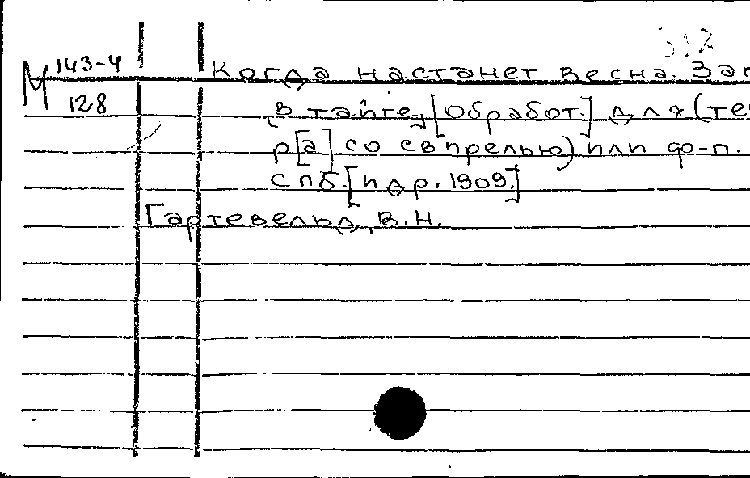 312
М 143-4
128
Когда настанет весна. Зап
в тайге] [Обработ.] для (те
р[а] со свирелью) или ф-п.
СПб. [ц.р. 1909.]
Гартевельд, В.Н.